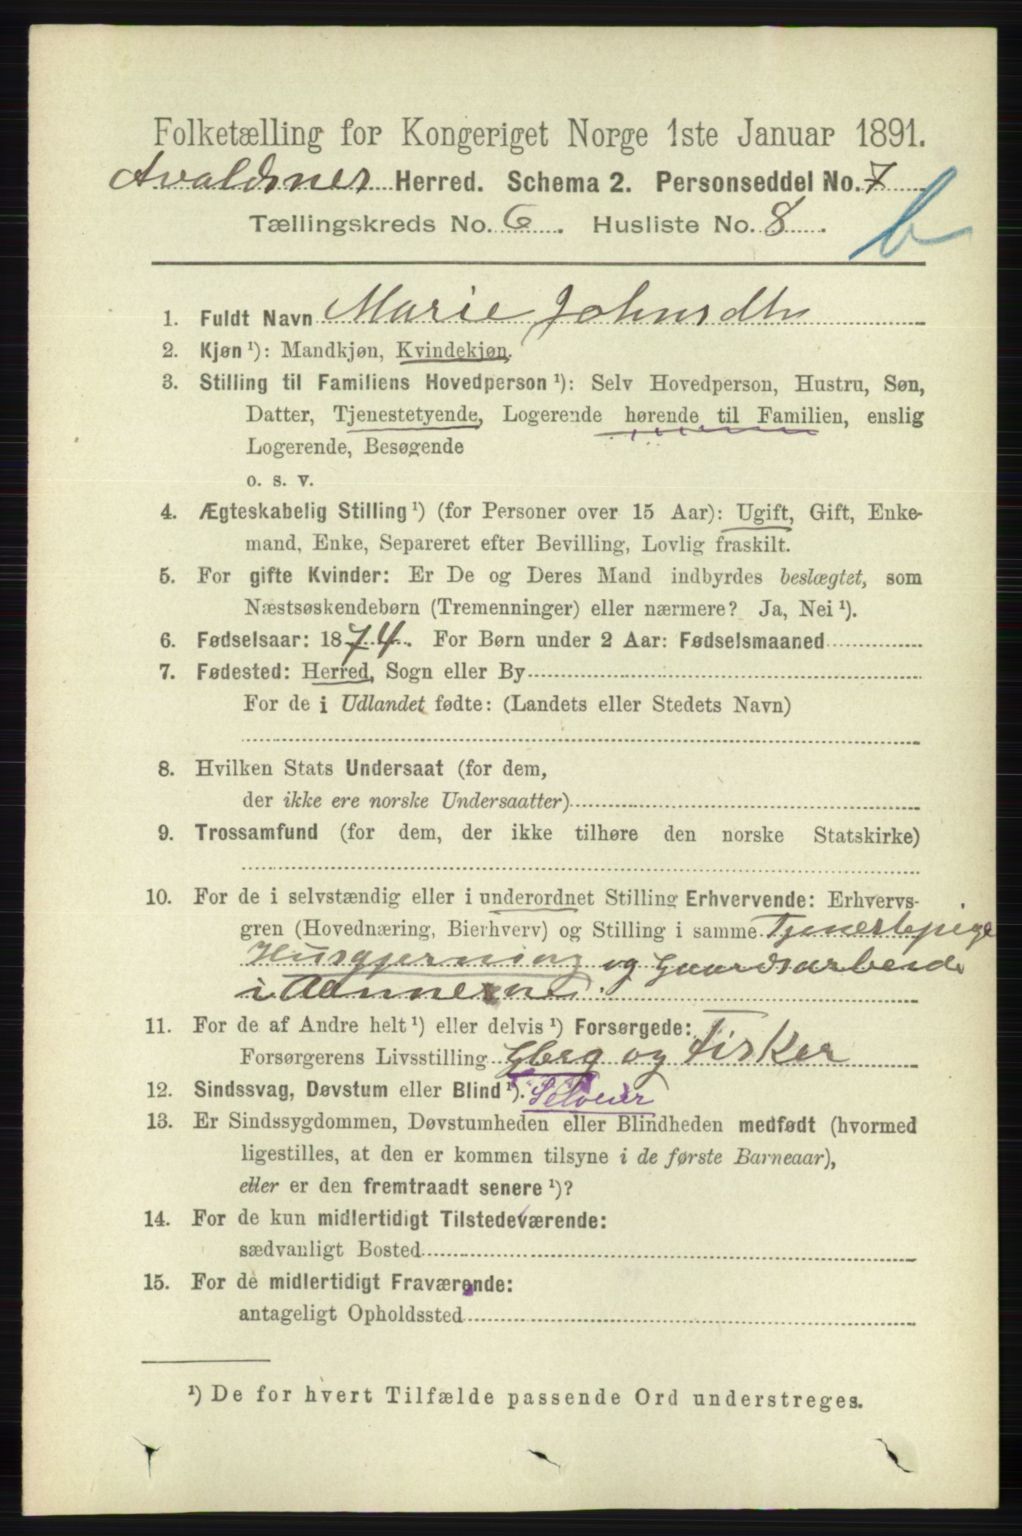 Folketælling for Kongeriget Norge 1ste Januar 1891.
Avaldsnes Herred. Schema 2. Personseddel No. 7
Tællingskreds No. 6. Husliste No. 8.
b
1. Fuldt Navn Marie Johnsdtr
2. Kjøn ¹): Mandkjøn, Kvindekjøn.
3. Stilling til Familiens Hovedperson ¹): Selv Hovedperson, Hustru, Søn,
Datter, Tjenestetyende, Logerende hørende til Familien, enslig
Logerende, Besøgende
o. s. v.
4. Ægteskabelig Stilling ¹) (for Personer over 15 Aar): Ugift, Gift, Enke-
mand, Enke, Separeret efter Bevilling, Lovlig fraskilt.
5. For gifte Kvinder: Er De og Deres Mand indbyrdes beslægtet, som
Næstsøskendebørn (Tremenninger) eller nærmere? Ja, Nei ¹).
6. Fødselsaar: 1874. For Børn under 2 Aar: Fødselsmaaned
7. Fødested: Herred, Sogn eller By
For de i Udlandet fødte: (Landets eller Stedets Navn)
8. Hvilken Stats Undersaat (for dem,
der ikke ere norske Undersaatter)
9. Trossamfund (for dem, der ikke tilhøre den norske Statskirke)
10. For de i selvstændig eller i underordnet Stilling Erhvervende: Erhvervs-
gren (Hovednæring, Bierhverv) og Stilling i samme Tjenestepige
Husgjerning og Gaardsarbeide
i
11. For de af Andre helt ¹) eller delvis ¹) Forsørgede:
Forsørgerens Livsstilling Gbrg og Fisker
12. Sindssvag, Døvstum eller Blind ¹). Selveier
13. Er Sindssygdommen, Døvstumheden eller Blindheden medfødt (hvormed
ligestilles, at den er kommen tilsyne i de første Barneaar),
eller er den fremtraadt senere ¹)?
14. For de kun midlertidigt Tilstedeværende:
sædvanligt Bosted
15. For de midlertidigt Fraværende:
antageligt Opholdssted
¹) De for hvert Tilfælde passende Ord understreges.